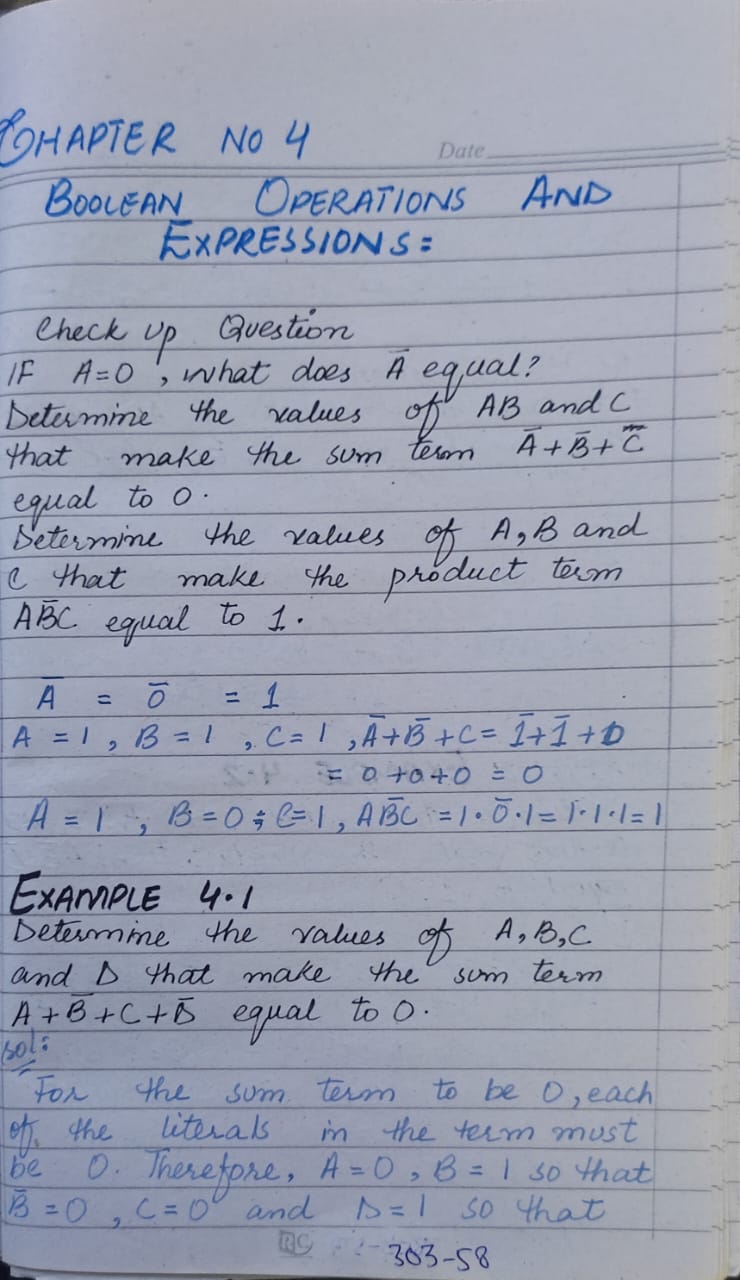 CHAPTER NO 4
Date
BOOLEAN OPERATIONS AND
EXPRESSIONS=
Check up Question
IF A=0, what does Ā equal?
Determine the values of AB and C
that make the sum term Ā+B̄+C̄
equal to 0.
Determine the values of A,B and
C that make the product term
AB̄C equal to 1.
Ā = 0̄ = 1
A = 1, B = 1, C = 1, Ā+B̄+C = 1̄+1̄+0
= 0+0+0 = 0
A = 1, B=0; C=1, AB̄C = 1·0̄·1 = 1·1·1 = 1
EXAMPLE 4.1
Determine the values of A,B,C
and D that make the sum term
A+B̄+C+D̄ equal to 0.
sol:
For the sum term to be 0, each
of the literals in the term must
be 0. Therefore, A=0, B=1 so that
B̄=0, C=0 and D=1 so that
303-58